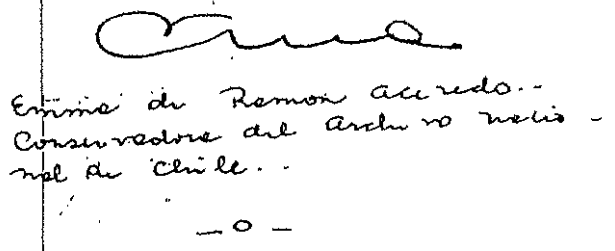 Emma de Ramon Acevedo.-
Conservadora del Archivo Nacio-
nal de Chile.-
_ o _